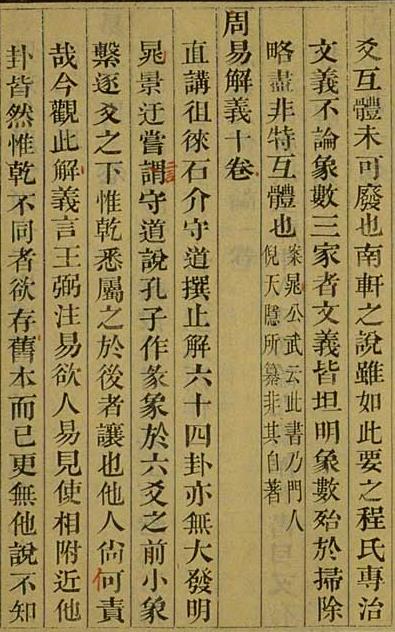 爻互體未可廢也南軒之說雖如此要之程氏專治
文義不論象數三家者文義皆坦明象數殆於掃除
略盡非特互體也案晁公武云此書乃門人
倪天隱所纂非其自著
周易解義十卷
直講徂徠石介守道撰止解六十四卦亦無大發明
晁景迂嘗謂守道說孔子作彖象於六爻之前小象
繫逐爻之下惟乾悉屬之於後者讓也他人尙何責
哉今觀此解義言王弼注易欲人易見使相附近他
卦皆然惟乾不同者欲存舊本而已更無他說不知